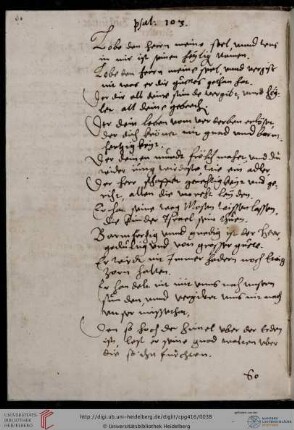 psal: 103.
Lobe den herrn meine seel, vnnd was
in mir ist seinen heylig namen.
Lobe den herrn meine seel, vnnd vergiß
nit was er dir guetes gethan hat.
Der dir alle deine sünde vergibt, vnnd heylet
alle deine gebrech
Der dein leben vom verderben erlöset
der dich krönet mit gnad vnnd barmhertzig
Der deinen mund frölich macht, vnnd du
wider jung wie ein adler
Der herr schaffet gerechtigkeit vnd
gericht, allen die vnrecht leiden
Er hat seine weg Mosen wissen lassen,
die kinder Israel sein thun.
Barmhertzig vnnd gnedig ist der Herr,
gedultig vnd von grosser güete.
Er wird nit jmmer hadern noch ewig
zorn halten.
Er handelt nit mit vns nach vnsern
sünden vnnd vergiltet vns nit nach
vnser missethat.
Dan so hoch der himel vber der erden
ist, lest er seine gnad walten vber
die so jn fürchten.
So
http://digi.ub.uni-heidelberg.de/diglit/cpg416/0038
© Universitätsbibliothek Heidelberg
UNIVERSITÄTS-
BIBLIOTHEK
HEIDELBERG